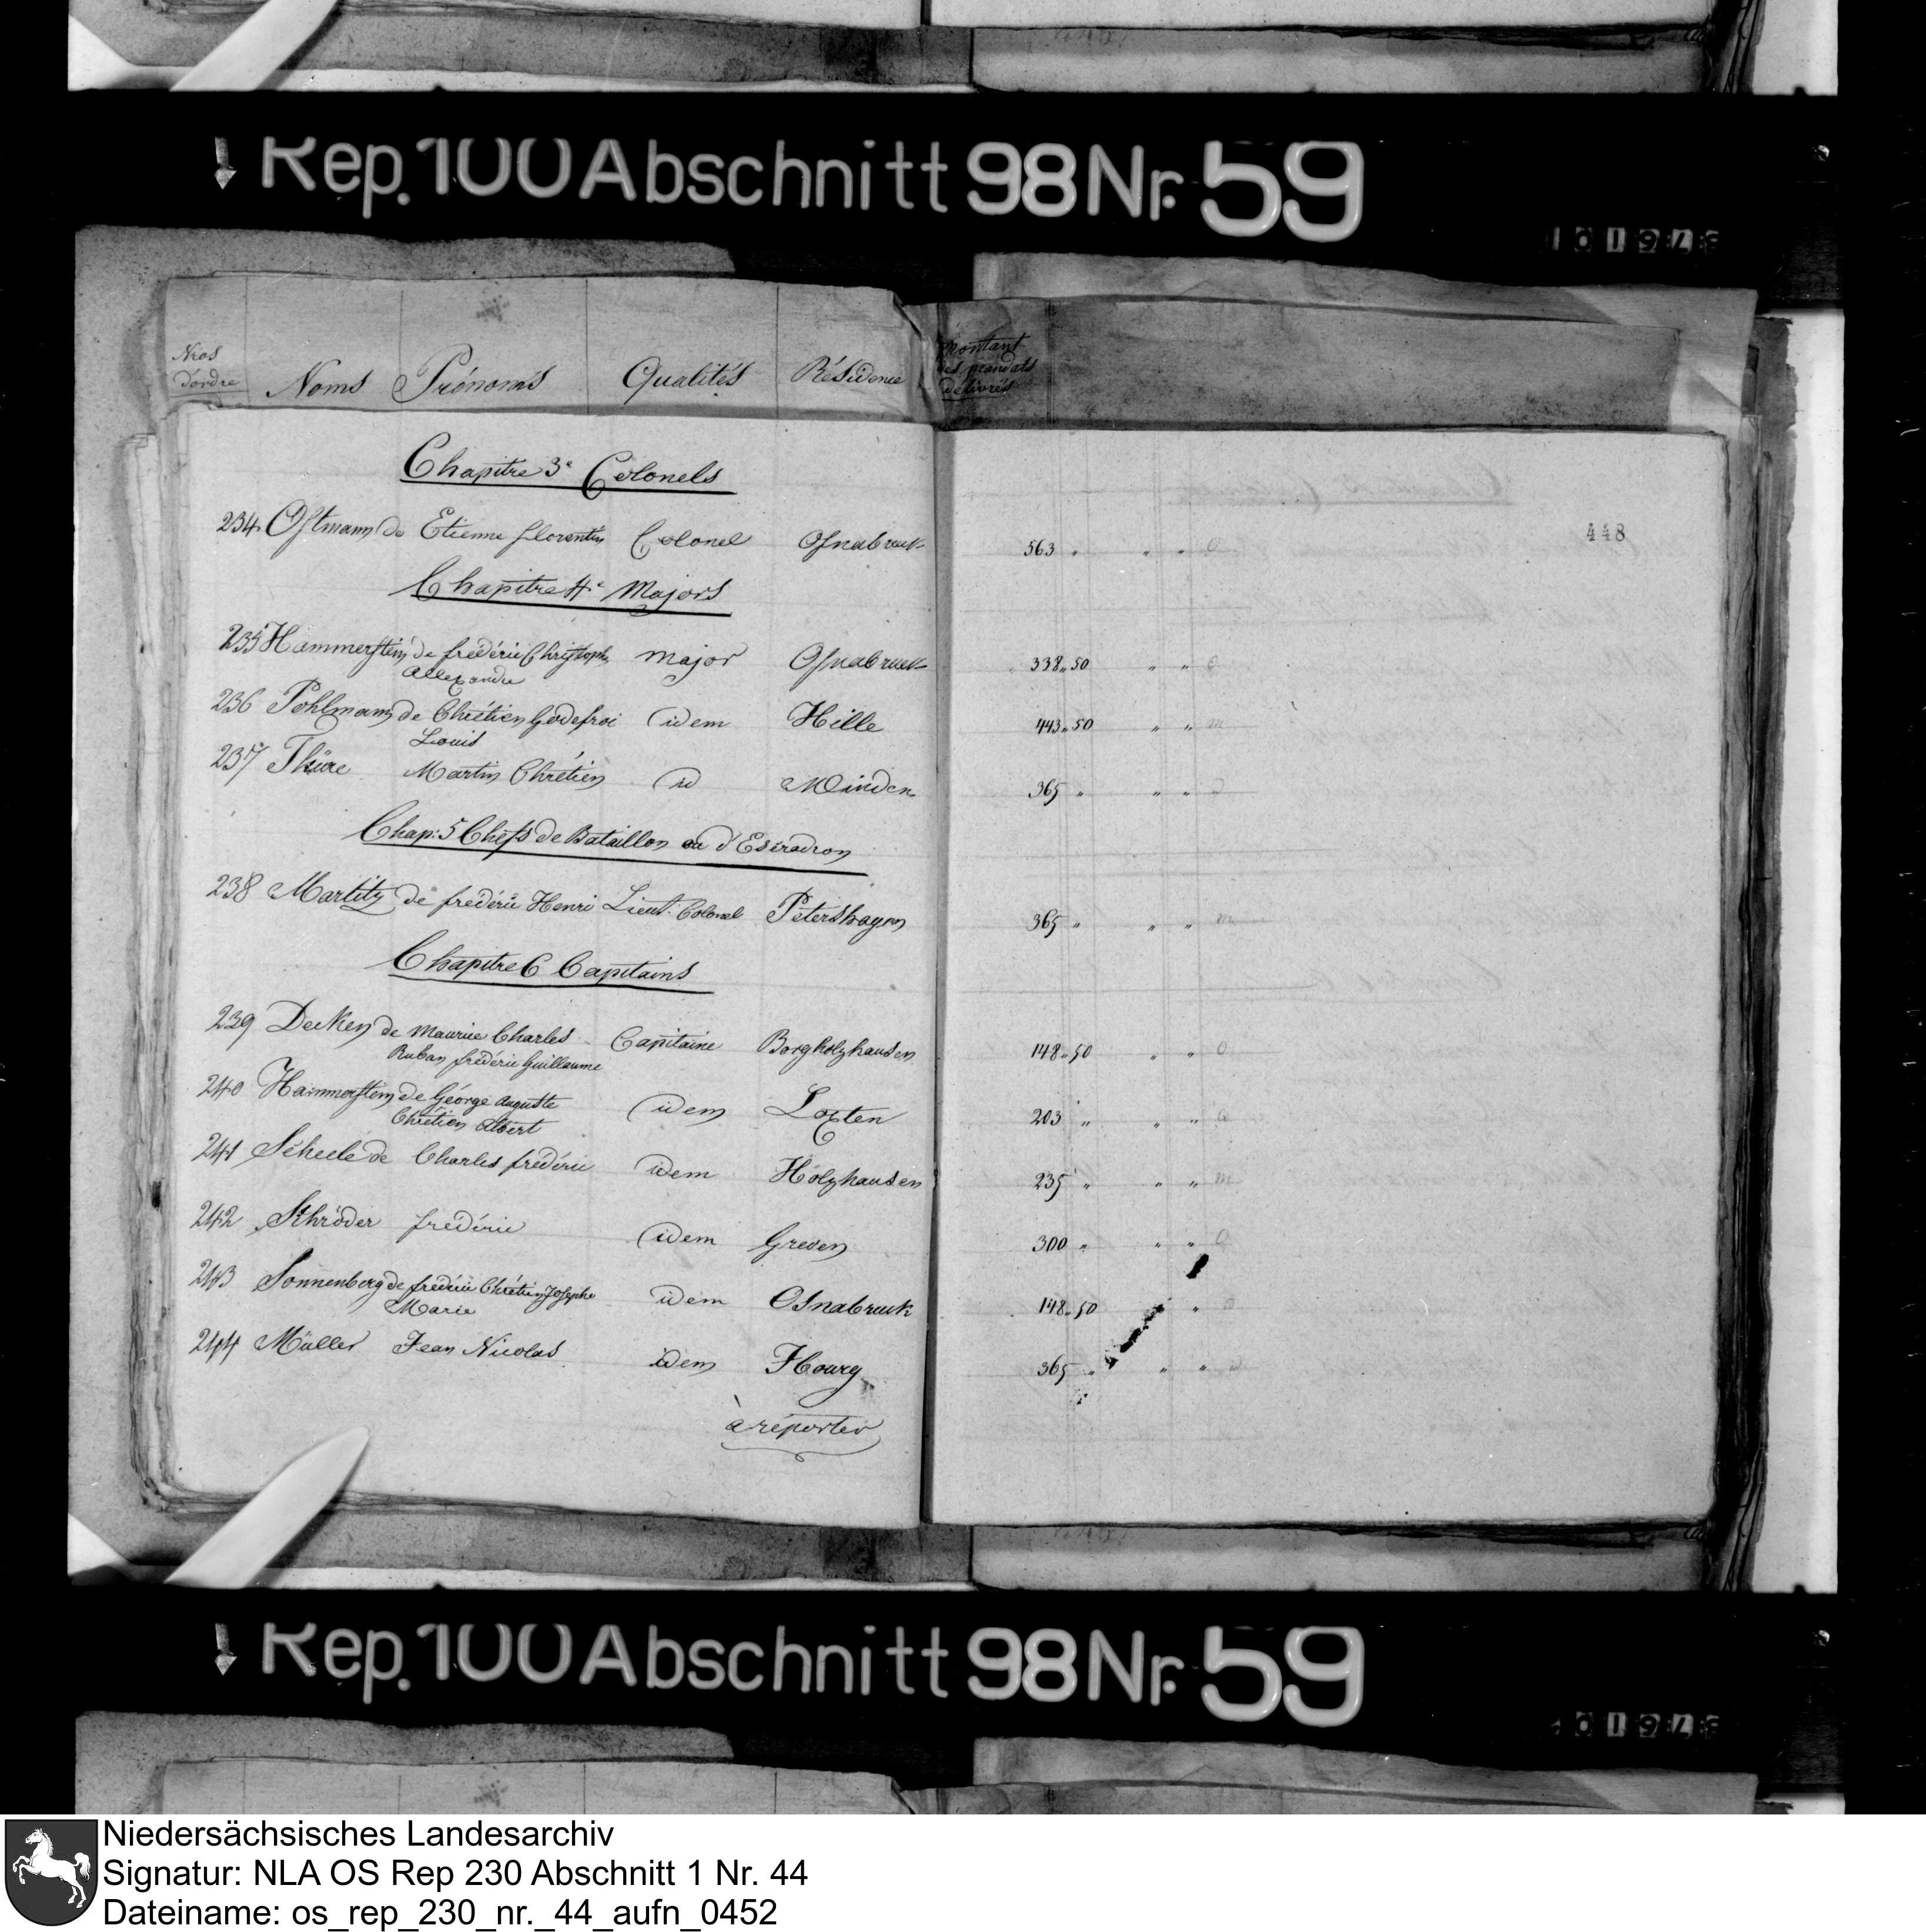 Rep. 100 Abschnitt 98 Nr. 59
Nros d'ordre Noms Prénoms Qualités Résidence Montant des mandats délivrés
Chapitre 3e Colonels
448
234 Ostmann de Etienne florentin Colonel Osnabruck 563 " " " O
Chapitre 4e Majors
235 Hammerstein de frédéric Christoph major Osnabruck 338 " 50 " " O
Allexandre
236 Pohlmann de Chrétien Godefroi idem Hille 443 " 50 " " m
Louis
237 Thüre Martin Chrétien id Minden 365 " " "
Chap: 5 Chefs de Bataillon ou d'Escradron
238 Martitz de frédéric Henri Lieut. Colonel Petershagen 365 " " " m
Chapitre 6 Capitains
239 Decken de Maurice Charles Capitaine Borgholzhausen 148 " 50 " " O
Ruban frédéric Guillaume
240 Hammerstein de George Auguste idem Loxten 203 " " "
Chrétien Albert
241 Scheele de Charles frédéric idem Holzhausen 235 " " " m
242 Schröder frédéric idem Greven 300 " " " O
243 Sonnenberg de frédéric Chrétien Josephe idem Osnabruck 148 " 50 "
Marie
244 Müller Jean Nicolas idem Hourg 365 " " "
à réporter
Rep. 100 Abschnitt 98 Nr. 59
Niedersächsisches Landesarchiv
Signatur: NLA OS Rep 230 Abschnitt 1 Nr. 44
Dateiname: os_rep_230_nr._44_aufn_0452